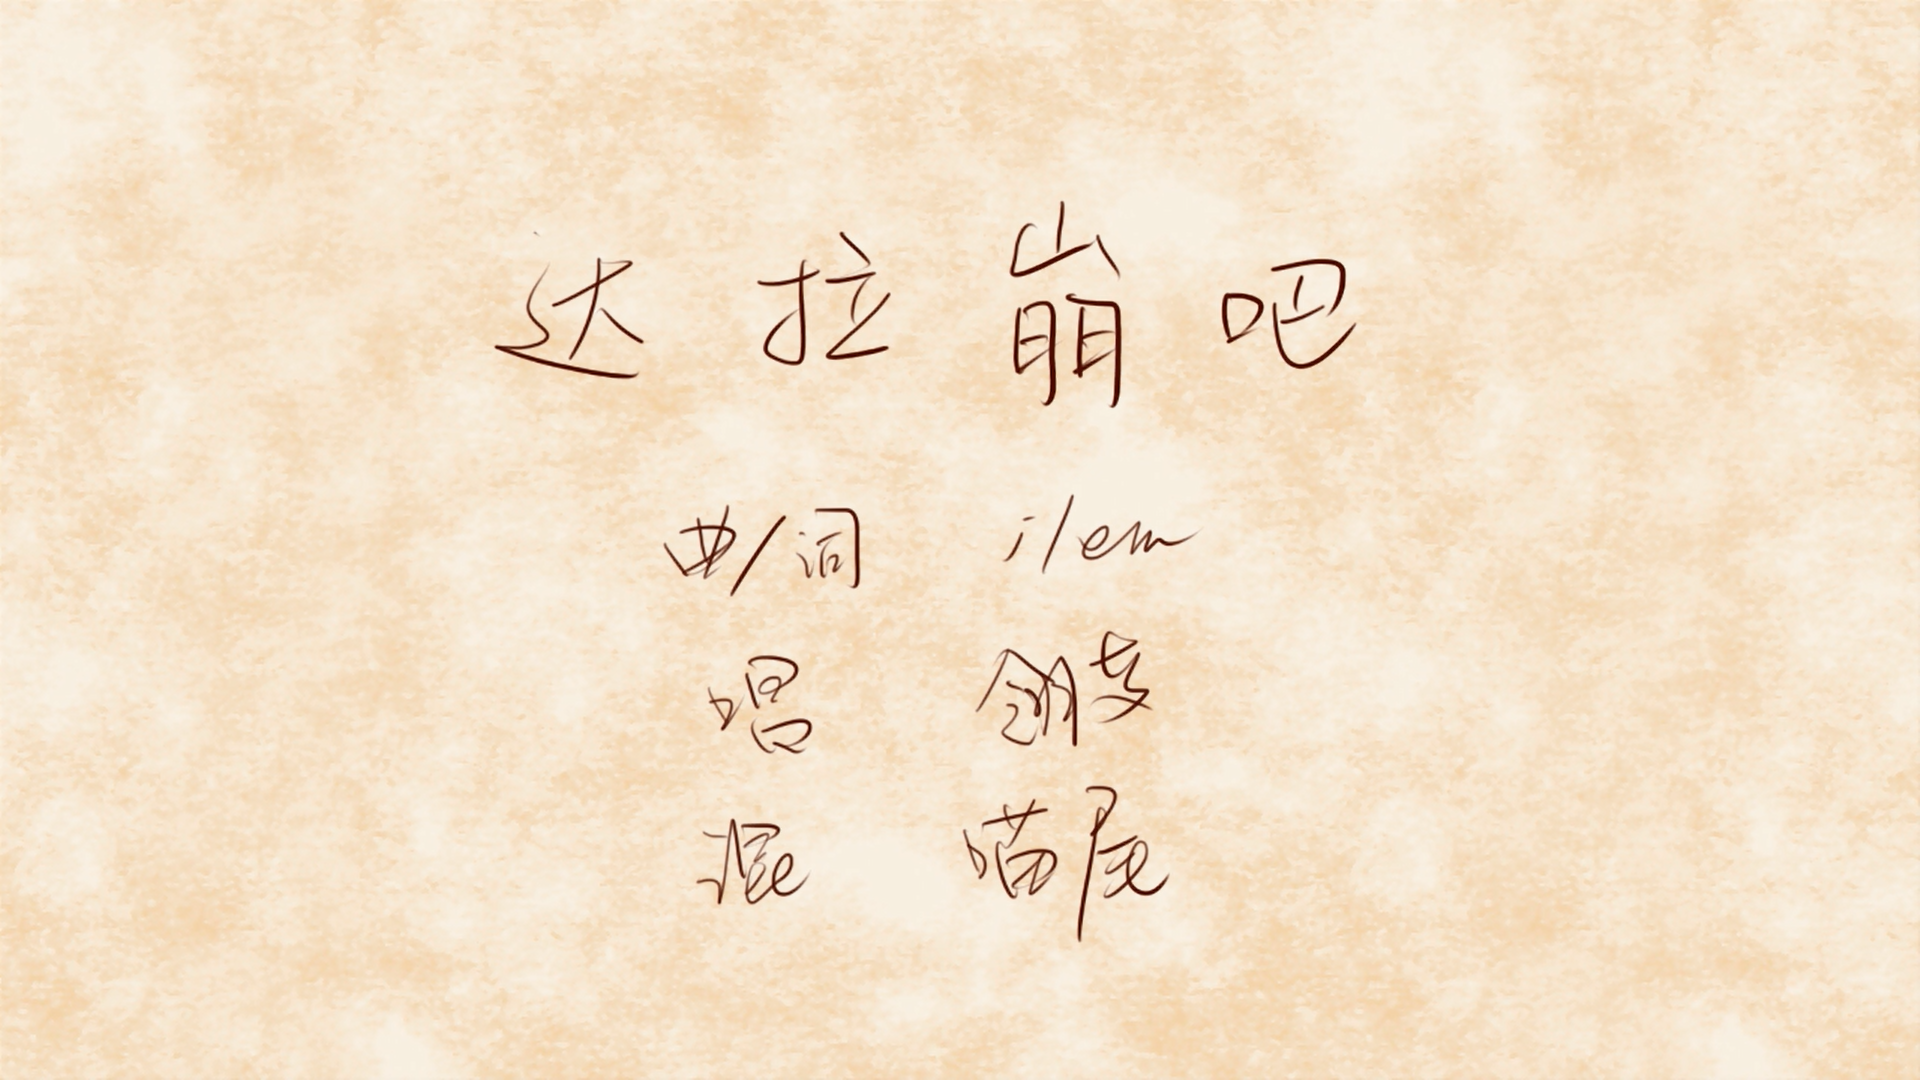 达拉崩吧
曲/词 ilem
唱
混 喵尾